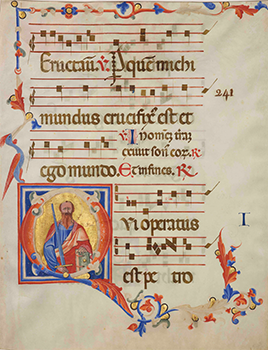 Eructaui. ℣ P quem michi
241
mundus crucifixus est et
℣ In omnem terram
exiuit sonus eorum. ℟
ego mundo. Et in fines. ℟
I
Qui operatus
est petro